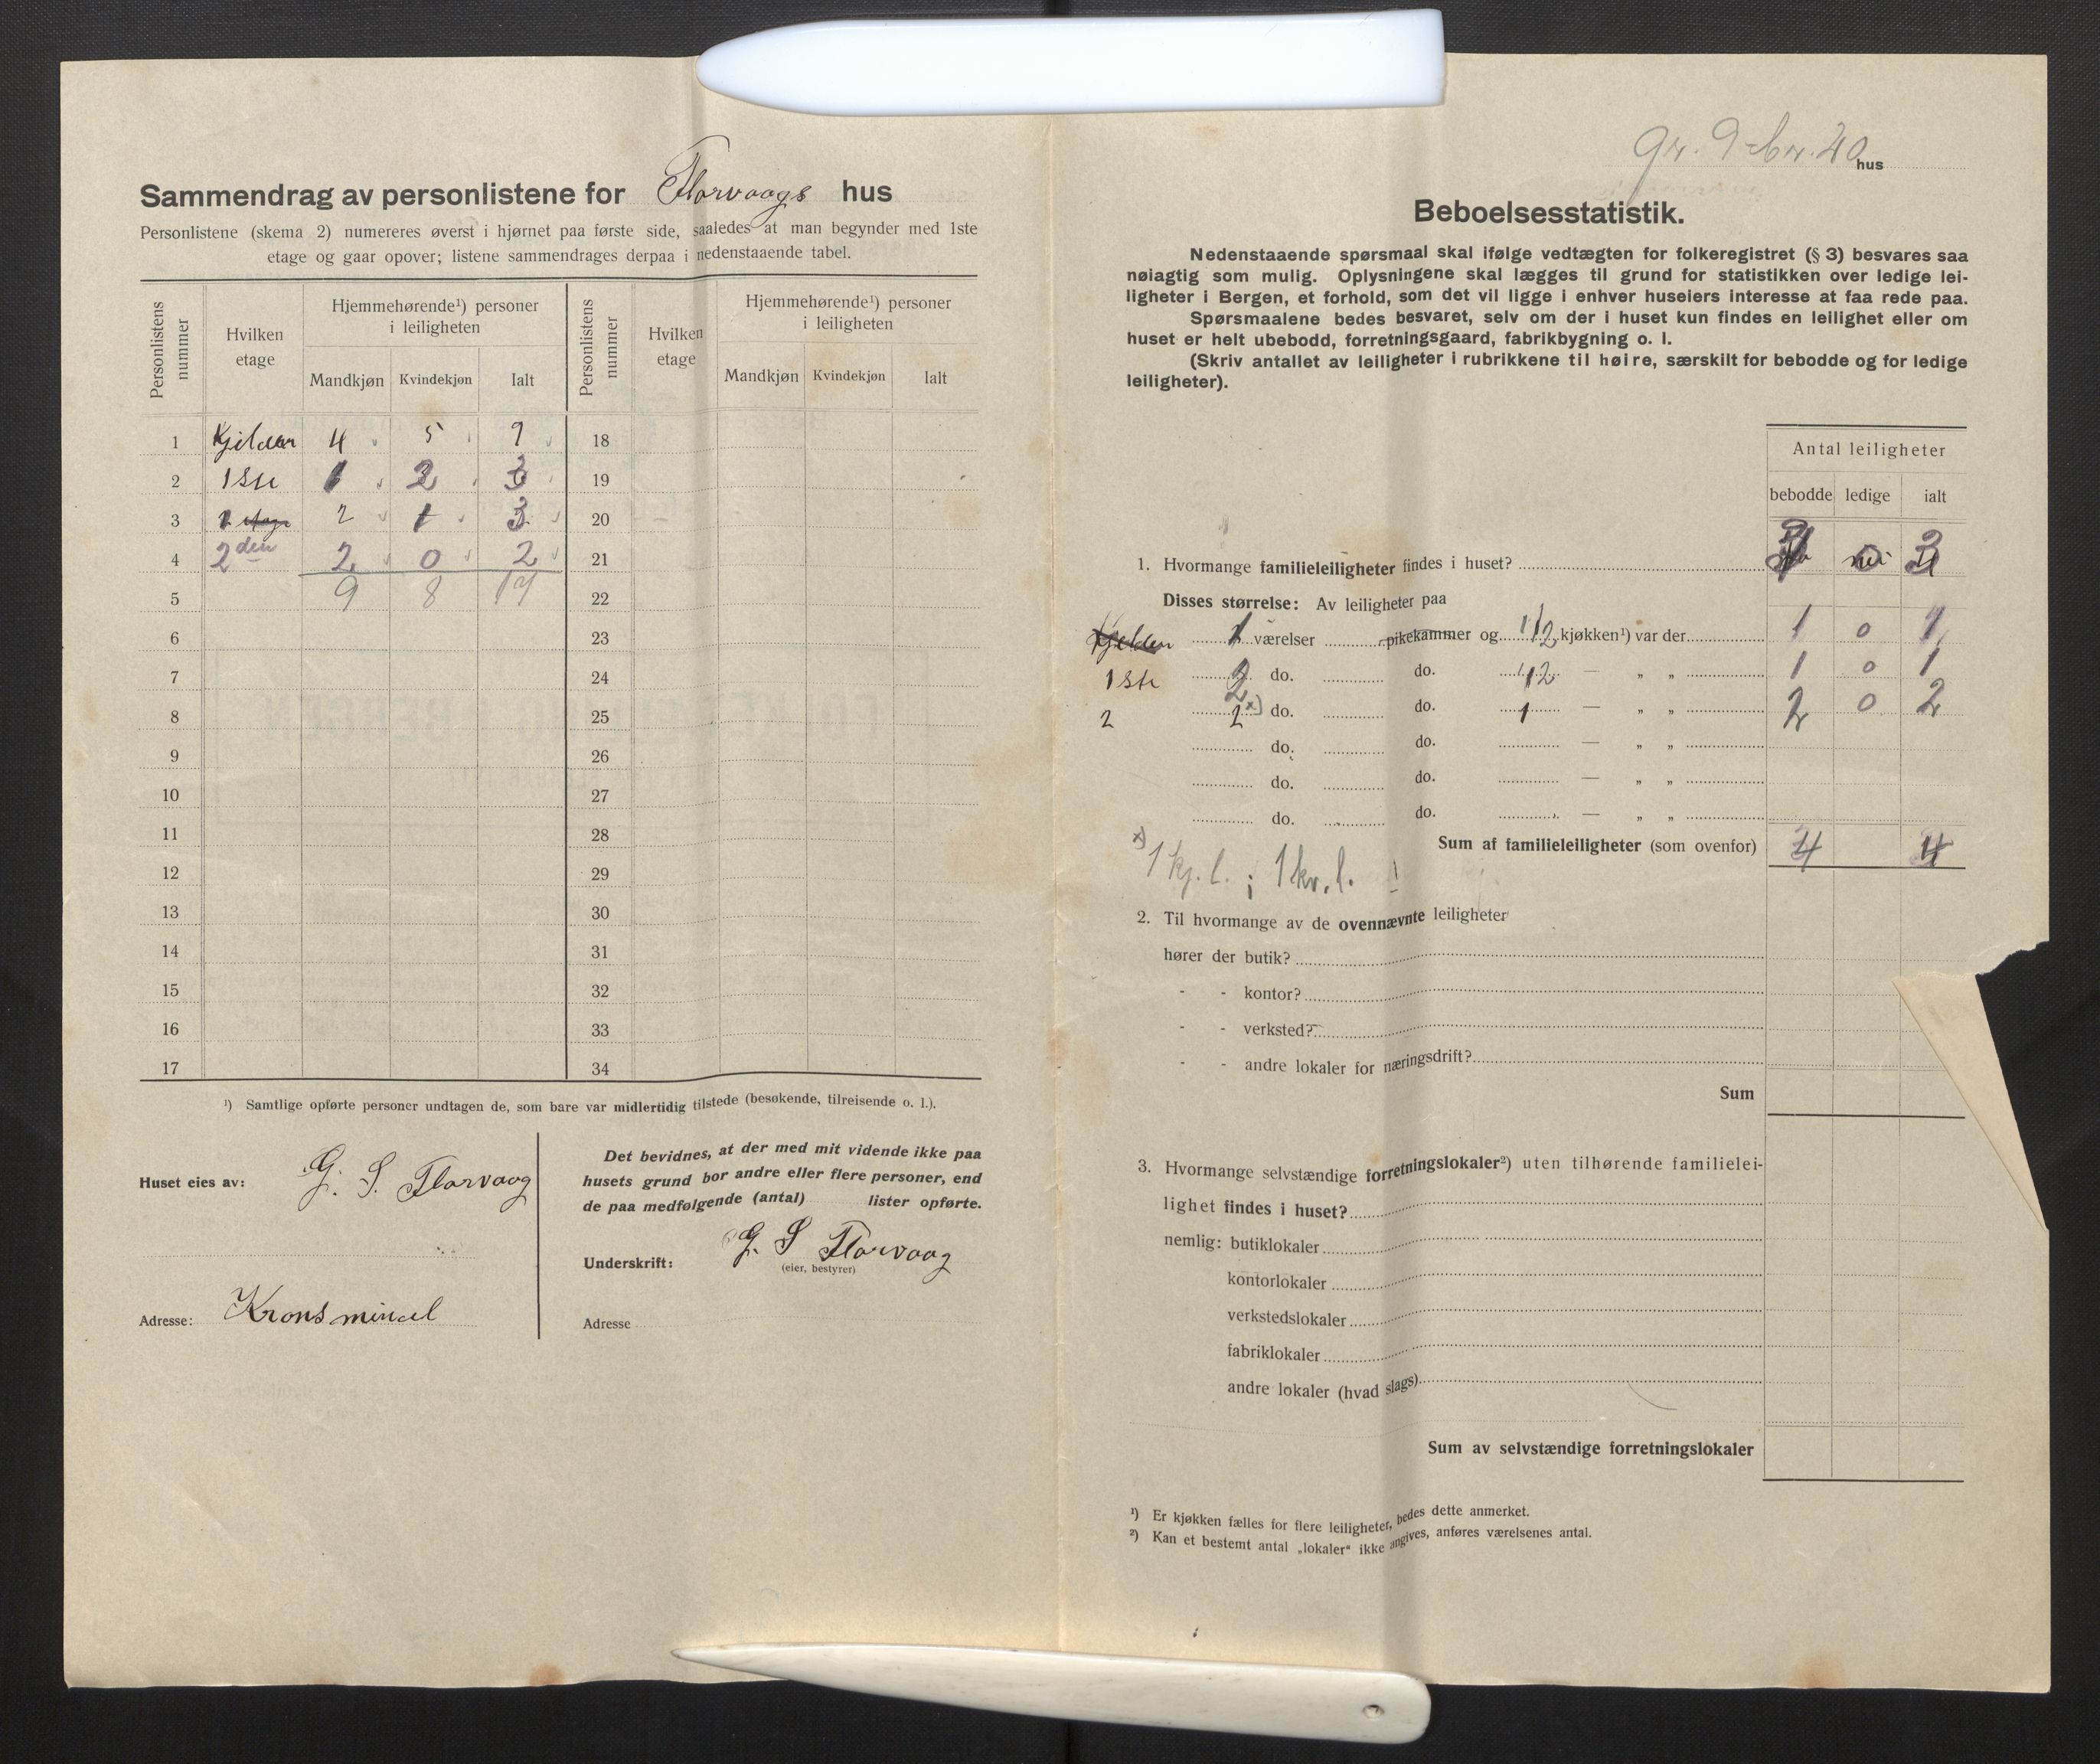 Sammendrag av personlistene for Florvaags hus
Personlistene (skema 2) numereres øverst i hjørnet paa første side, saaledes at man begynder med 1ste
etage og gaar opover; listene sammendrages derpaa i nedenstaaende tabel.
Personlistens nummer Hvilken etage Hjemmehørende¹) personer i leiligheten Mandkjøn Kvindekjøn Ialt
Personlistens nummer Hvilken etage Hjemmehørende¹) personer i leiligheten Mandkjøn Kvindekjøn Ialt
1 Kjelder 4 5 9 18
2 1ste 1 2 3 19
3 2 1 3 20
4 2den 2 0 2 21
5 9 8 17 22
6 23
7 24
8 25
9 26
10 27
11 28
12 29
13 30
14 31
15 32
16 33
17 34
¹) Samtlige opførte personer undtagen de, som bare var midlertidig tilstede (besøkende, tilreisende o. l.).
Huset eies av: G. S. Florvaag
Adresse: Kronsminde
Det bevidnes, at der med mit vidende ikke paa
husets grund bor andre eller flere personer, end
de paa medfølgende (antal) lister opførte.
Underskrift: G. S Florvaag
(eier, bestyrer)
Adresse
gr. 9 br. 20 hus
Beboelsesstatistik.
Nedenstaaende spørsmaal skal ifølge vedtægten for folkeregistret (§ 3) besvares saa
nøiagtig som mulig. Oplysningene skal lægges til grund for statistikken over ledige lei-
ligheter i Bergen, et forhold, som det vil ligge i enhver huseiers interesse at faa rede paa.
Spørsmaalene bedes besvaret, selv om der i huset kun findes en leilighet eller om
huset er helt ubebodd, forretningsgaard, fabrikbygning o. l.
(Skriv antallet av leiligheter i rubrikkene til høire, særskilt for bebodde og for ledige
leiligheter).
Antal leiligheter
bebodde ledige ialt
1. Hvormange familieleiligheter findes i huset? 3
Disses størrelse: Av leiligheter paa
Kjelder 1 værelser pikekammer og 1/2 kjøkken¹) var der 1 0 1
1ste 2 do. do. 1/2 — „ „ 1 0 1
2 2 x) do. do. 1 — „ „ 2 0 2
do. do. — „ „
do. do. — „ „
do. do. — „ „
Sum af familieleiligheter (som ovenfor) 4 4
x) 1 kj. l. ; 1 kv. l. !
2. Til hvormange av de ovennævnte leiligheter
hører der butik?
- - kontor?
- - verksted?
- - andre lokaler for næringsdrift?
Sum
3. Hvormange selvstændige forretningslokaler²) uten tilhørende familielei-
lighet findes i huset?
nemlig: butiklokaler
kontorlokaler
verkstedslokaler
fabriklokaler
andre lokaler (hvad slags)
Sum av selvstændige forretningslokaler
¹) Er kjøkken fælles for flere leiligheter, bedes dette anmerket.
²) Kan et bestemt antal „lokaler“ ikke angives, anføres værelsenes antal.